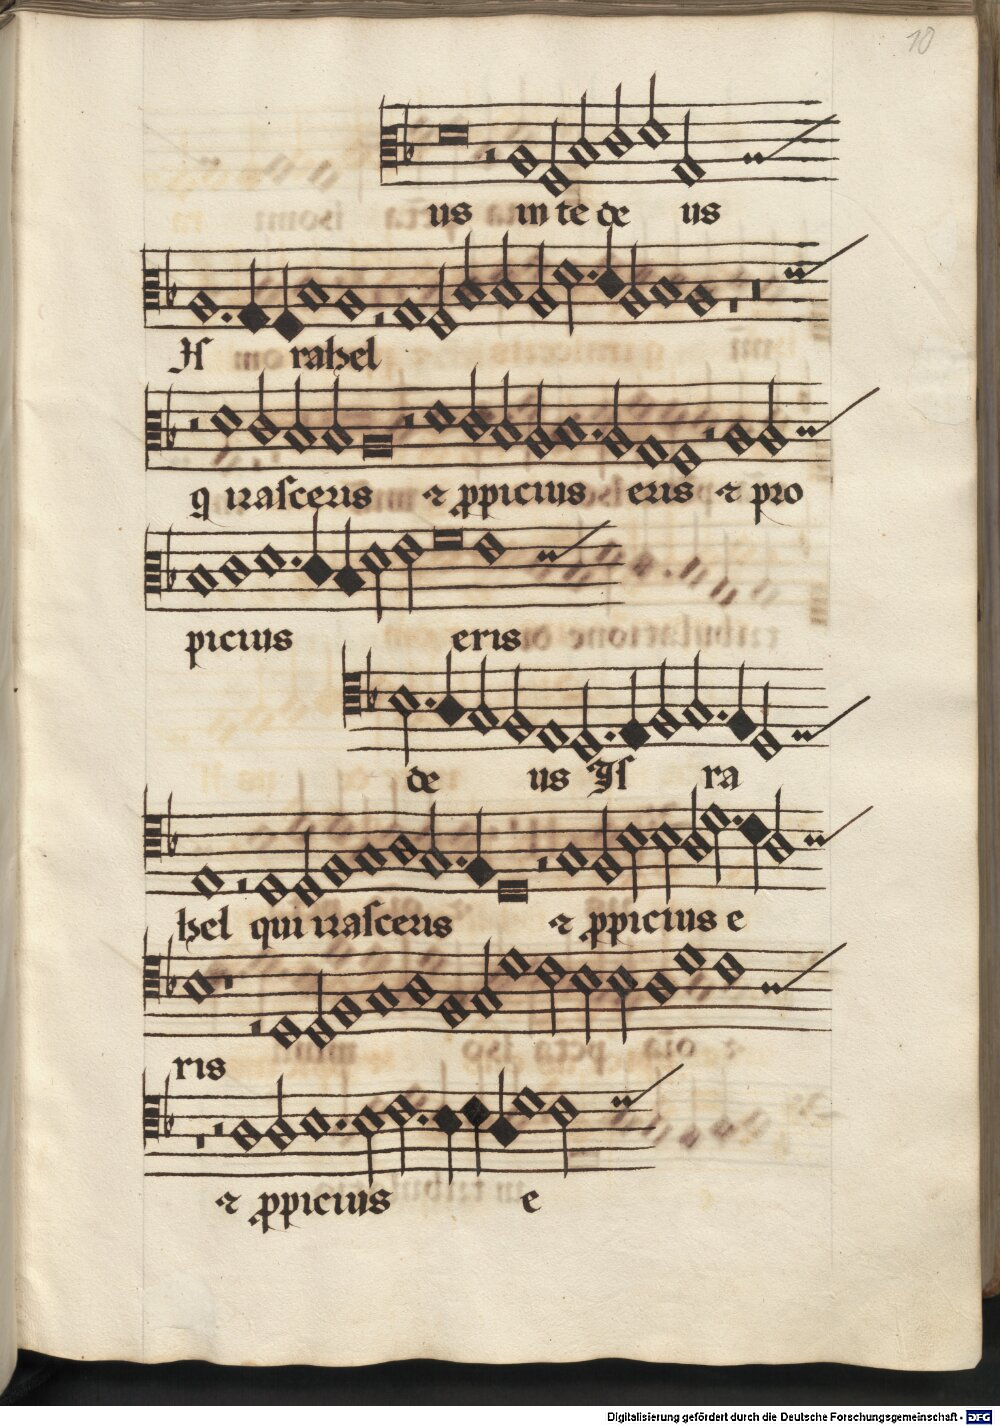 10
us in te de us
Is rahel
q irasceris et ꝓpicius eris et pro
picius eris
de us Is ra
hel qui irasceris et ꝓpicius e
ris
et ꝓpicius e
Digitalisierung gefördert durch die Deutsche Forschungsgemeinschaft - DFG